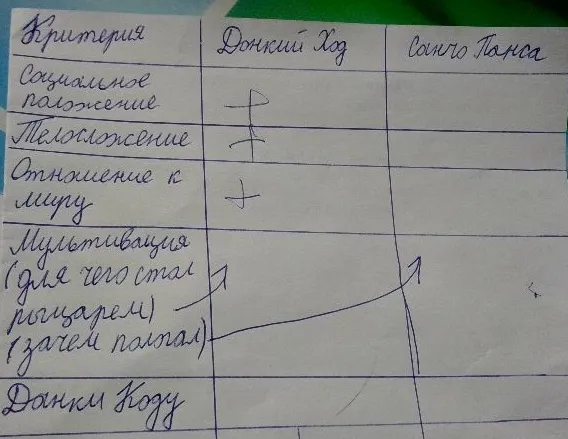 Критерия Донкий Ход Санчо Панса
Социальное
положение
Телосложение
Отношение к
миру
Мультивация
(для чего стал
рыцарем)
(зачем пологал)
Данки Коду